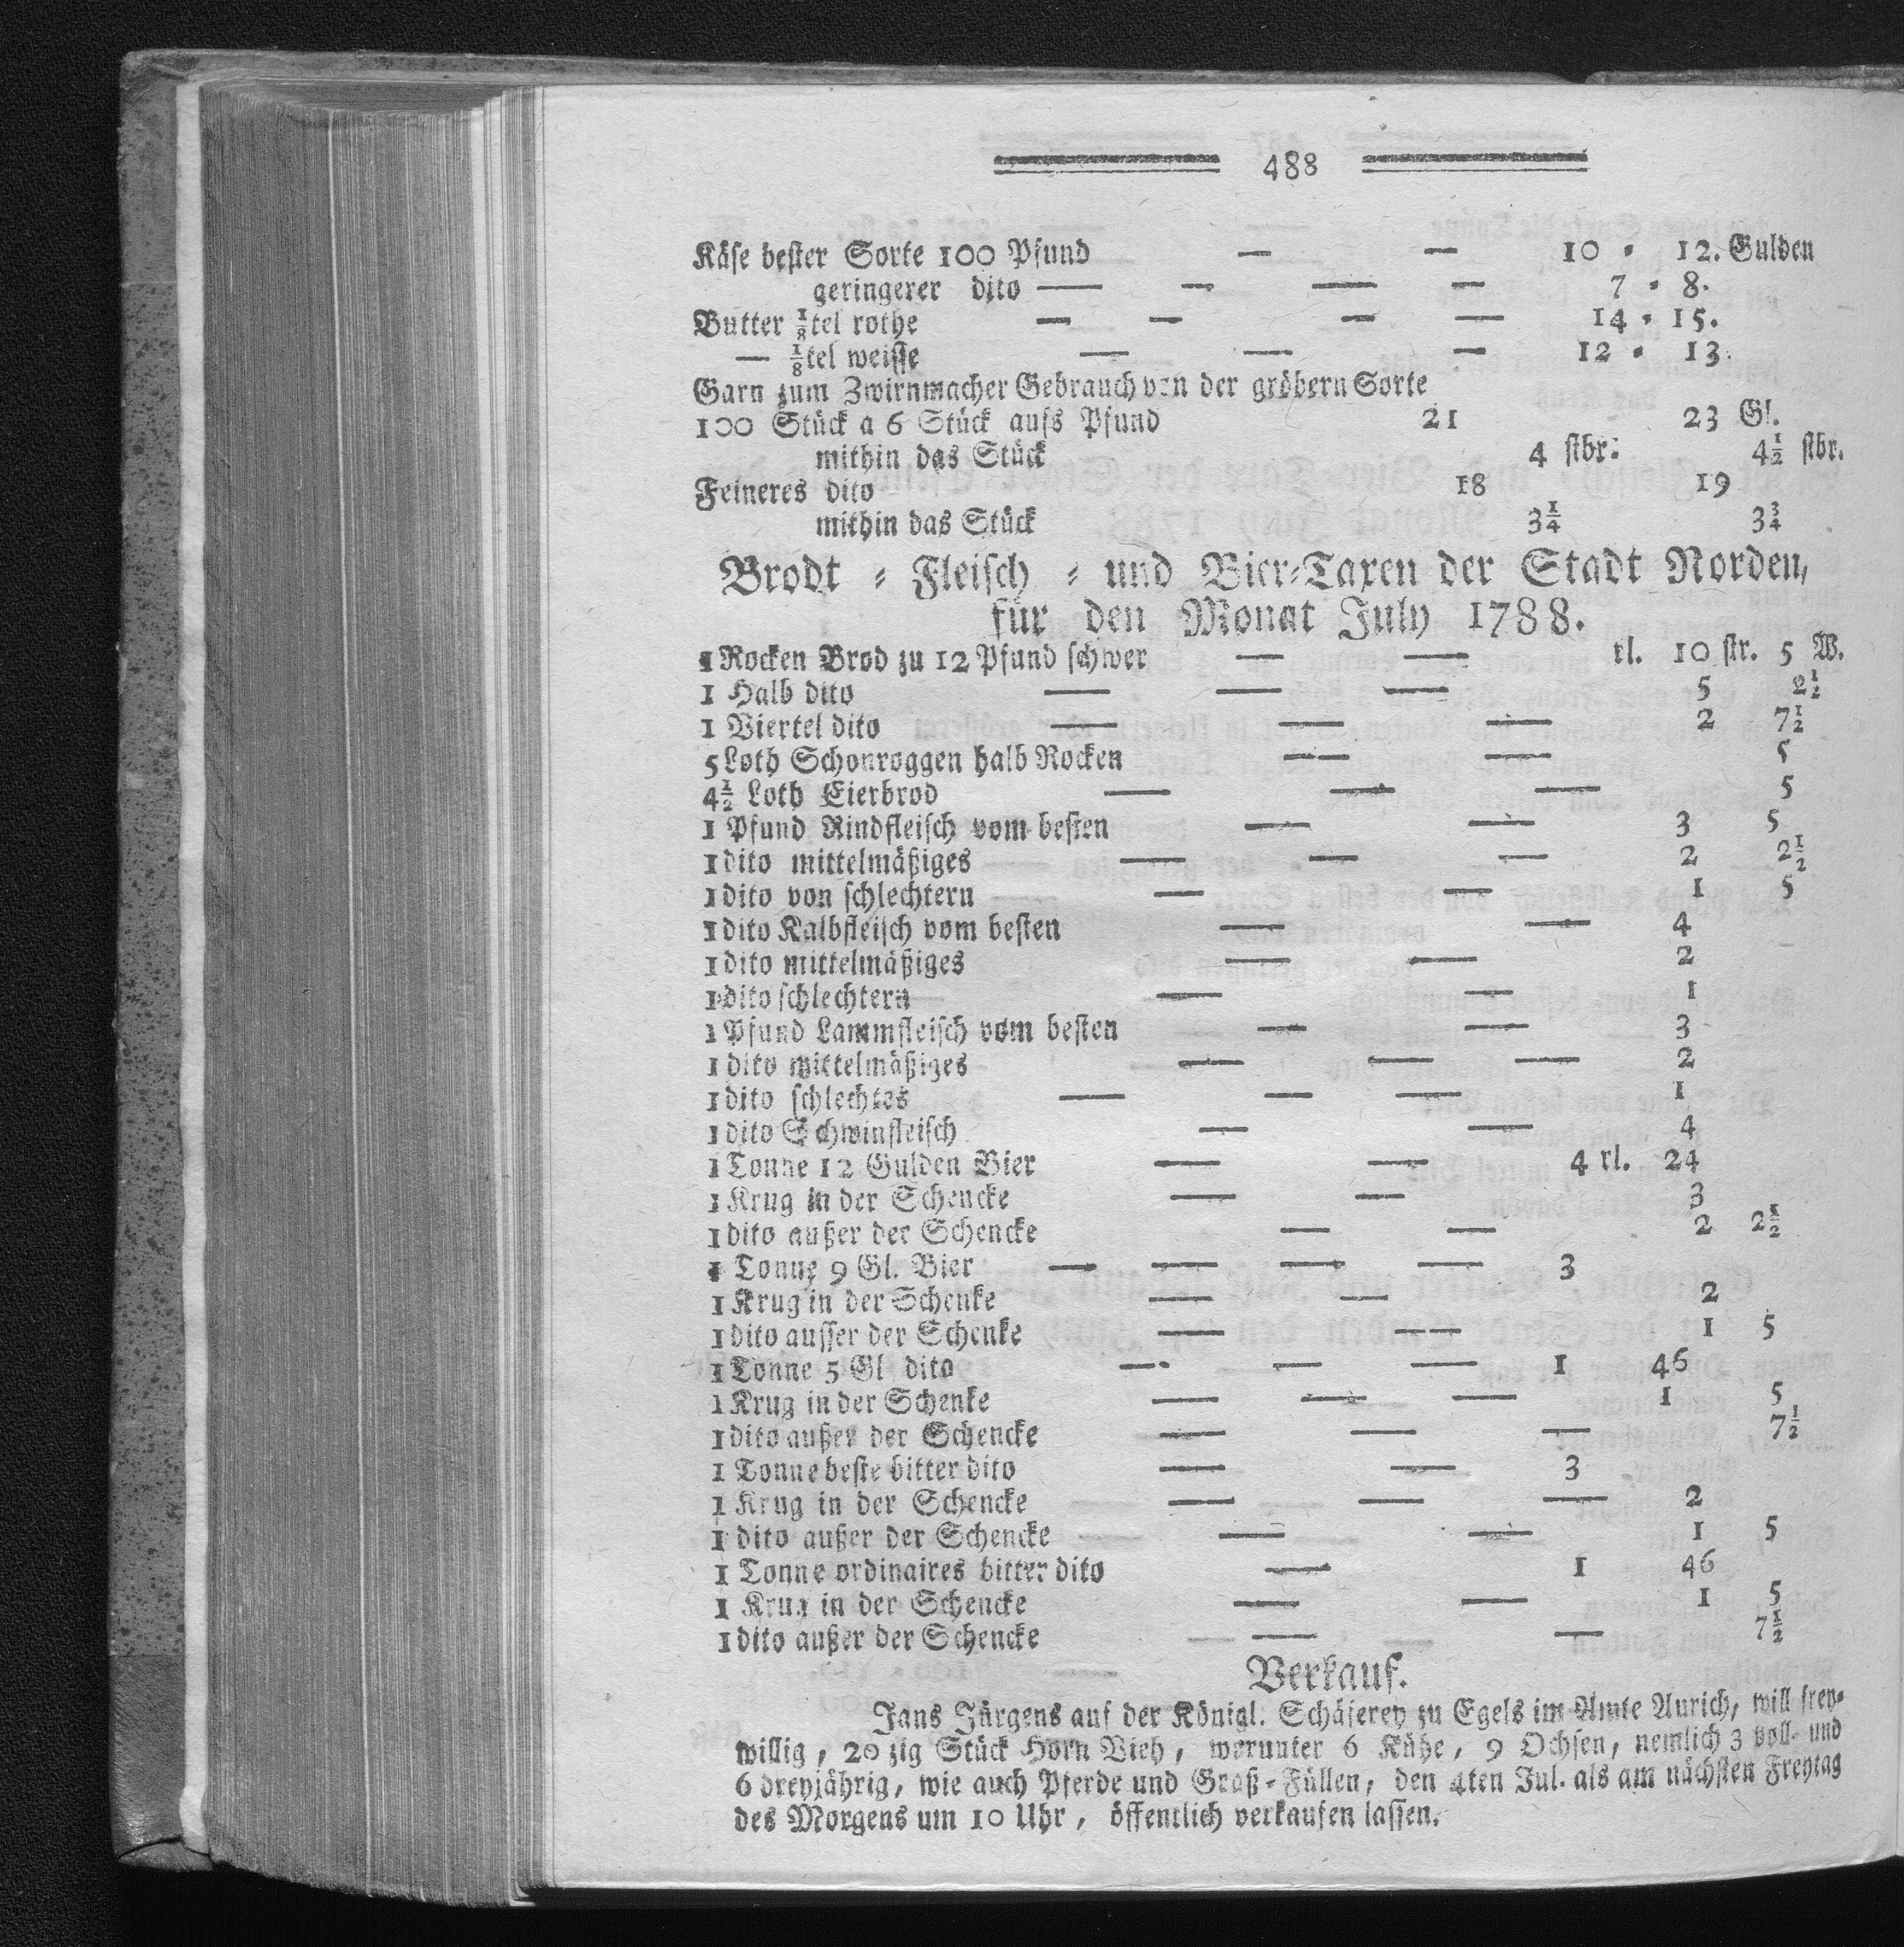 488
Käse bester Sorte 100 Pfund — — 10 = 12. Gulden
geringerer dito — — — — 7 = 8.
Butter ⅛tel rothe — — — — 14 = 15.
— ⅛tel weisse — — — 12 = 13.
Garn zum Zwirnmacher Gebrauch von der gröbern Sorte
100 Stück a 6 Stück aufs Pfund 21 23 Gl.
mithin das Stück 4 stbr. 4½ stbr.
Feineres dito 18 19
mithin das Stück 3¼ 3¾
Brodt = Fleisch = und Bier=Taxen der Stadt Norden,
für den Monat July 1788.
1 Rocken Brod zu 12 Pfund schwer — — rl. 10 str. 5 W.
1 Halb dito — — — 5 2½
1 Viertel dito — — — 2 7½
5 Loth Schonroggen halb Rocken — — 5
4½ Loth Eierbrod — — — 5
1 Pfund Rindfleisch vom besten — — 3 5
1 dito mittelmäßiges — — — 2 2½
1 dito von schlechtern — — 1 5
1 dito Kalbfleisch vom besten — — 4
1 dito mittelmäßiges — — 2
1 dito schlechtern — — 1
1 Pfund Lammfleisch vom besten — — 3
1 dito mittelmäßiges — — — 2
1 dito schlechtes — — — 1
1 dito Schwinfleisch — — 4
1 Tonne 12 Gulden Bier — — 4 rl. 24
1 Krug in der Schencke — — 3
1 dito außer der Schencke — — 2 2½
1 Tonne 9 Gl. Bier — — — — 3
1 Krug in der Schenke — — 2
1 dito ausser der Schenke — — 1 5
1 Tonne 5 Gl dito — — — 1 46
1 Krug in der Schenke — — — 1 5
1 dito außer der Schencke — — — 7½
1 Tonne beste bitter dito — — 3
1 Krug in der Schencke — — — 2
1 dito außer der Schencke — — 1 5
1 Tonne ordinaires bitter dito — 1 46
1 Krug in der Schencke — — 1 5
1 dito außer der Schencke — — 7½
Verkauf.
Jans Jürgens auf der Königl. Schäferey zu Egels im Amte Aurich, will frey=
willig, 20 zig Stück Horn Vieh, worunter 6 Kühe, 9 Ochsen, nemlich 3 voll- und
6 dreyjährig, wie auch Pferde und Graß=Füllen, den 4ten Jul. als am nächsten Freytag
des Morgens um 10 Uhr, öffentlich verkaufen lassen.